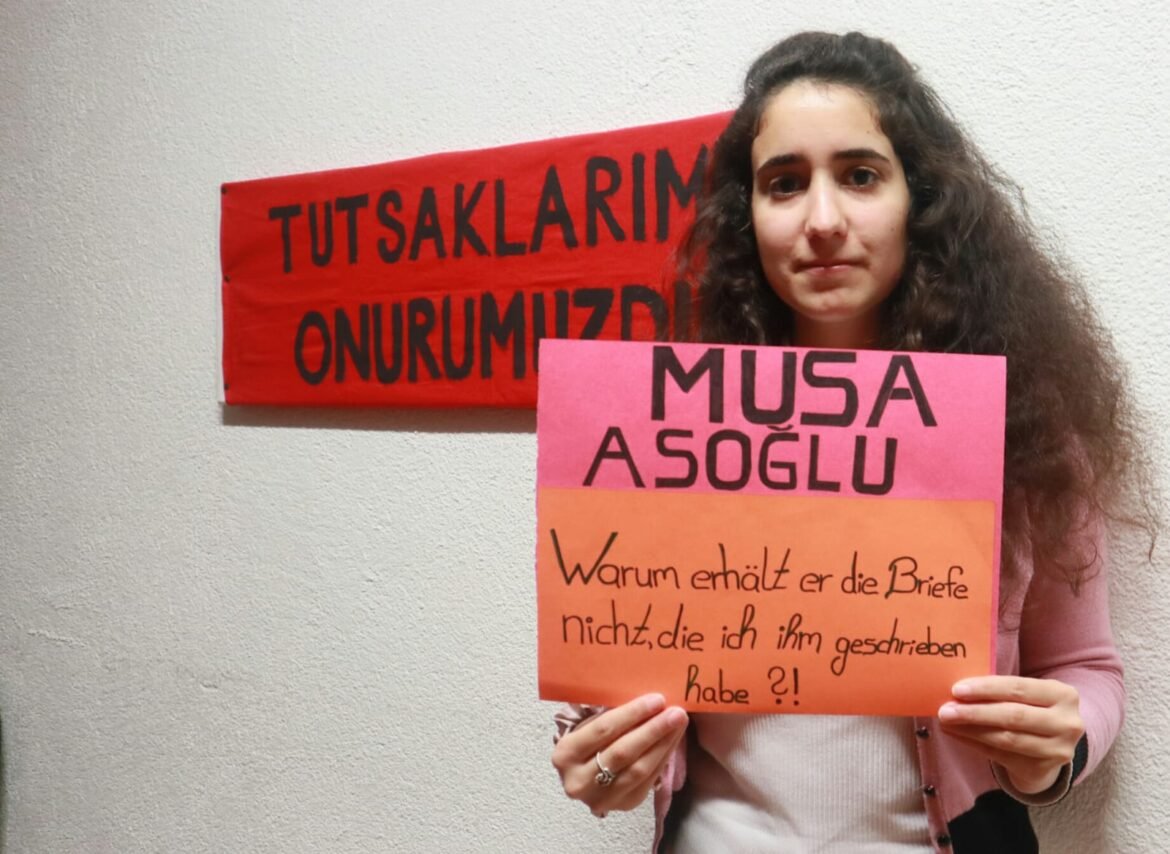 TUTSAKLARIM
ONURUMUZDU
MUSA
ASOĞLU
Warum erhält er die Briefe
nicht, die ich ihm geschrieben
habe ?!